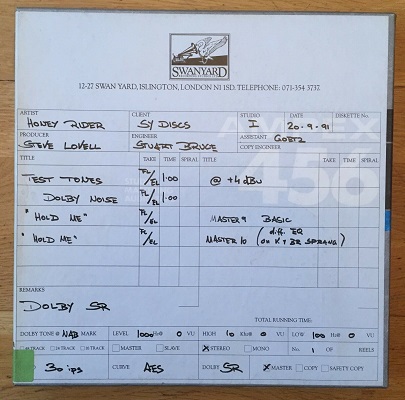 SWANYARD
12-27 SWAN YARD, ISLINGTON, LONDON N1 1SD. TELEPHONE: 071-354 3737
ARTIST CLIENT STUDIO DATE DISKETTE No.
HONEY RIDER SY DISCS I 20-9-91
PRODUCER ENGINEER ASSISTANT GOETZ
STEVE LOVELL STUART BRUCE COPY ENGINEER
TITLE TAKE TIME SPIRAL TITLE TAKE TIME SPIRAL
TEST TONES FL/EL 1:00 @ +4 dBu
DOLBY NOISE FL/EL 1:00
"HOLD ME" FL/EL MASTER 9 BASIC
"HOLD ME" FL/EL MASTER 10 (diff. EQ
456
REMARKS
DOLBY SR
TOTAL RUNNING TIME:
DOLBY TONE @ NAB MARK LEVEL 1000 Hz@ 0 VU HIGH 10 KHz@ 0 VU LOW 100 Hz@ 0 VU
24 TRACK MASTER SLAVE X STEREO MONO No. 1 OF REELS
30 ips CURVE AES DOLBY SR X MASTER COPY SAFETY COPY